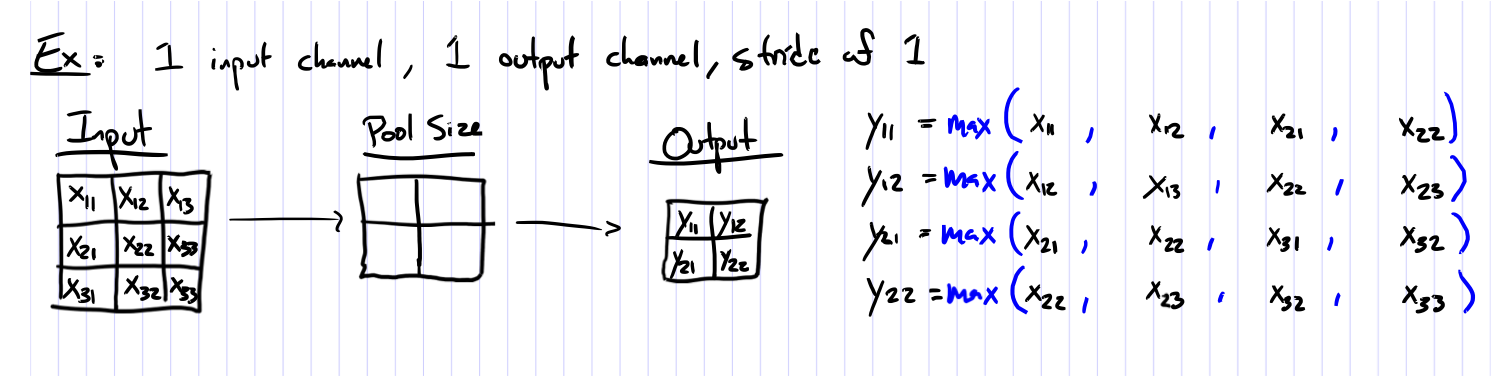 Ex: 1 input channel, 1 output channel, stride of 1
Input
x11 x12 x13
x21 x22 x33
x31 x32 x33
Pool Size
Output
y11 y12
y21 y22
y11 = max(x11, x12, x21, x22)
y12 = max(x12, x13, x22, x23)
y21 = max(x21, x22, x31, x32)
y22 = max(x22, x23, x32, x33)